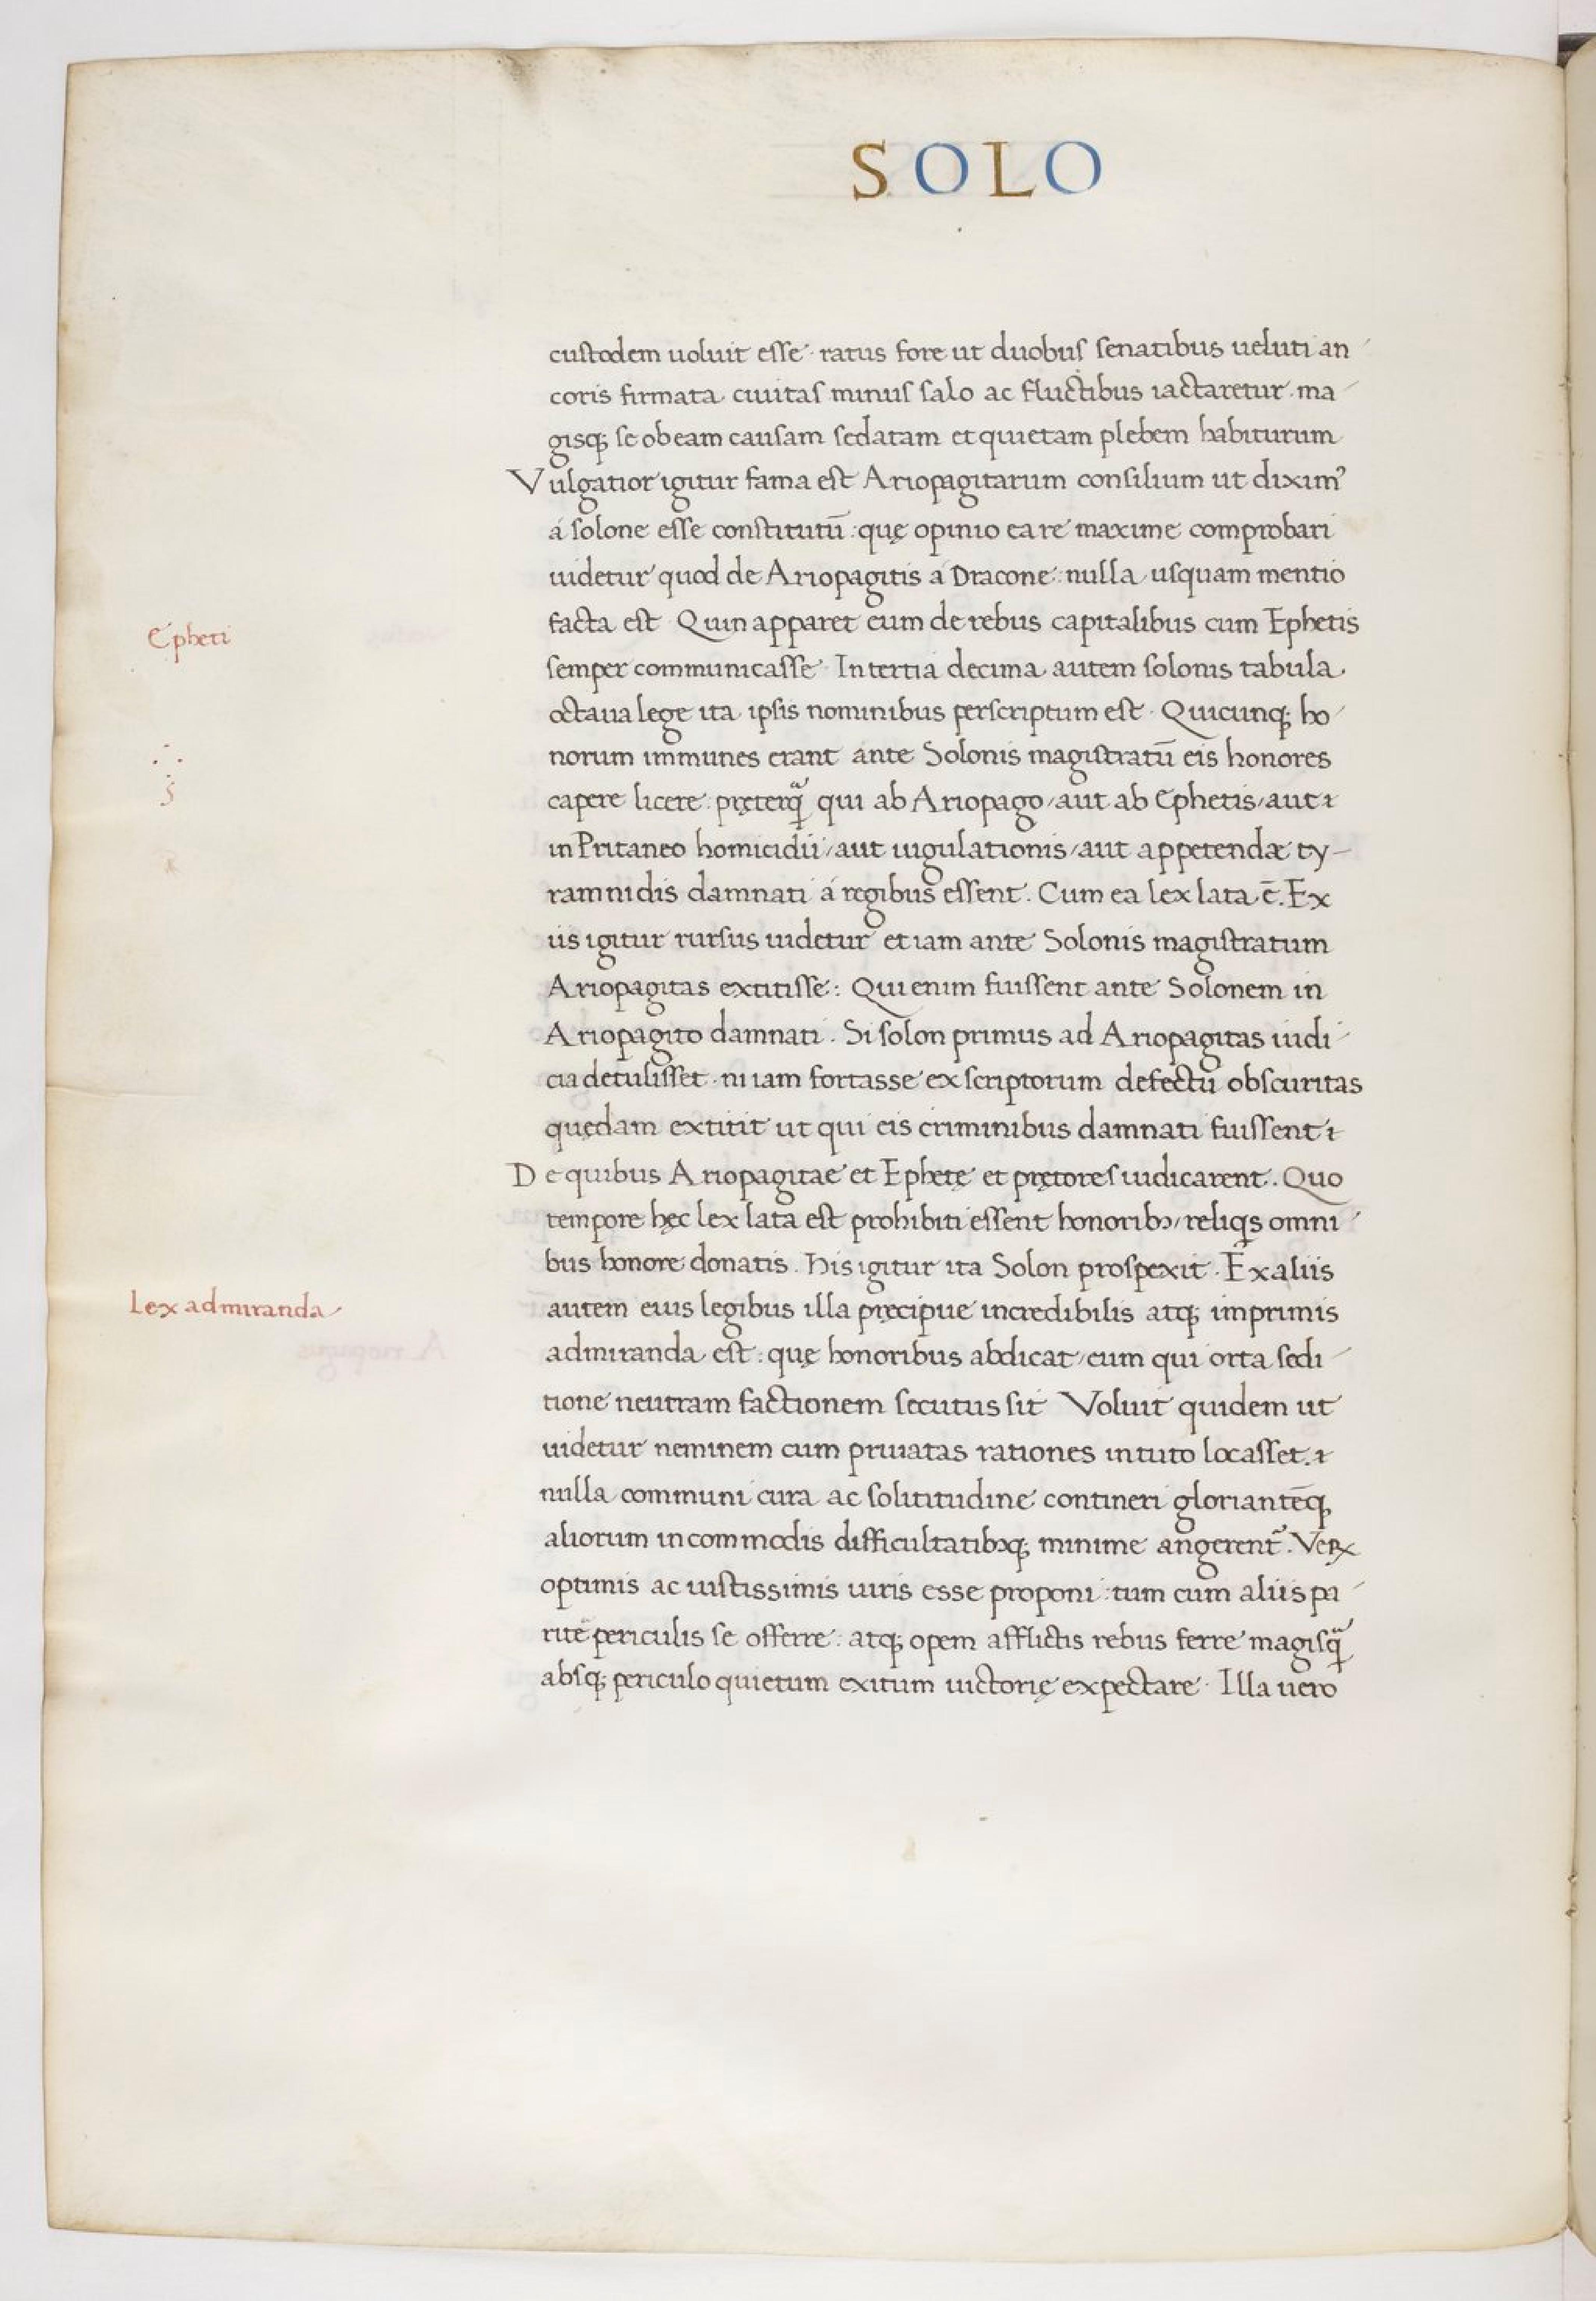 SOLO
custodem uoluit esse· ratus fore ut duobus senatibus ueluti an
coris firmata ciuitas minus salo ac fluctibus iactaretur· ma
gisq; se ob eam causam sedatam et quietam plebem habiturum
Vulgatior igitur fama est Ariopagitarum consilium ut diximꝰ
á solone esse constitutū: quę opinio ea re maxime comprobari
uidetur quod de Ariopagitis á Dracone: nulla usquam mentio
facta est· Quin apparet eum de rebus capitalibus cum Ephetis
Epheti
semper communicasse· In tertia decima autem solonis tabula
octaua lege ita ipsis nominibus perscriptum est· Quicunq; ho
norum immunes erant ante Solonis magistratū eis honores
capere licere: pręterq̃ qui ab Ariopago/ aut ab Ephetis/ aut
in Pritaneo homicidii/ aut iugulationis/ aut appetendæ ty-
ramnidis damnati á regibus essent. Cum ea lex lata ē. Ex
iis igitur rursus uidetur et iam ante Solonis magistratum
Ariopagitas extitisse: Qui enim fuissent ante Solonem in
Ariopagito damnati. Si solon primus ad Ariopagitas iudi
cia detulisset· ni iam fortasse ex scriptorum defectu obscuritas
quędam extitit ut qui eis criminibus damnati fuissent
De quibus Ariopagitae et Ephetę et pretores iudicarent. Quo
tempore hęc lex lata est prohibiti essent honoribꝫ/ reliqis omni
bus honore donatis. His igitur ita Solon prospexit. Ex aliis
autem eius legibus illa pręcipue incredibilis atq; imprimis
Lex admiranda
admiranda est: quę honoribus abdicat/ eum qui orta sedi
tione neutram factionem secutus sit Voluit quidem ut
uidetur neminem cum priuatas rationes in tuto locasset.
nulla communi cura ac solititudine contineri gloriantēq;
aliorum incommodis difficultatibꝫq; minime angerent᷑. Veꝝ
optimis ac iustissimis uiris esse proponi: tum cum aliis pa
rite periculis se offerre: atq; opem afflictis rebus ferre magisq̃
absq; periculo quietum exitum uictorię expectare· Illa uero